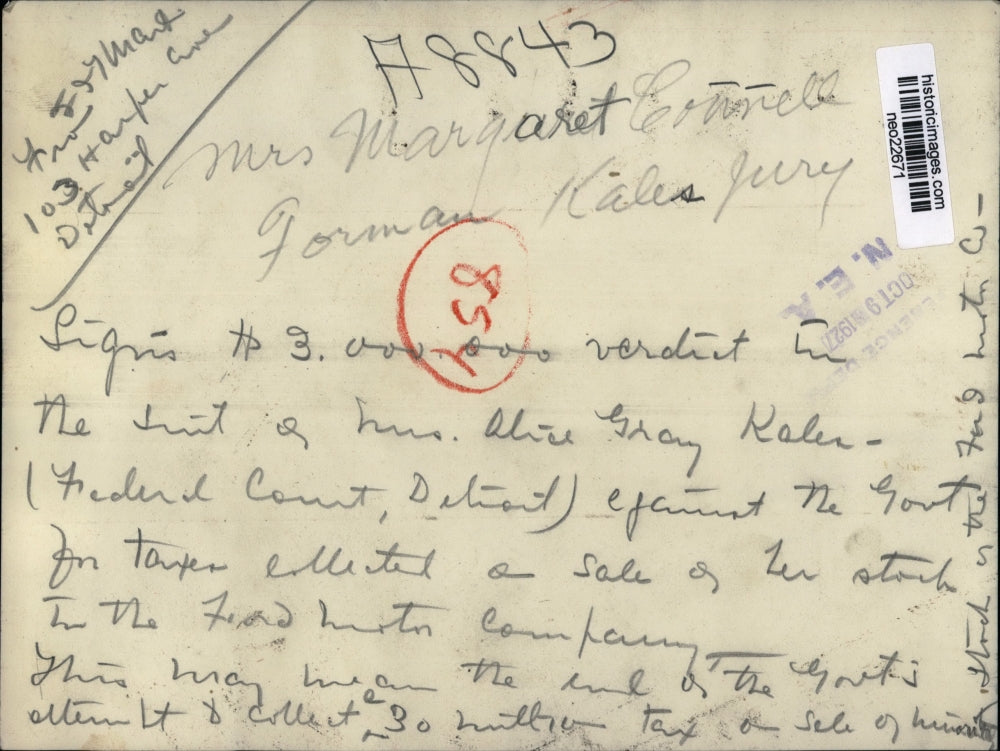 A8843
From
103 Harper Ave
Detroit
Mrs Margaret Connell
Forman Kales Jury
854
historicimages.com
neo22671
N. E. A
OCT 9 1927
Signs $3.000.000 verdict in
the suit of Mrs. Alice Gray Kales -
(Federal Court, Detroit) against the Govt
for taxes collected on sale of her stock
in the Ford Motor Company
This may mean the end of the Govt's
attempt to collect a 30 million tax on sale of minority
stock of the Ford Motor Co -